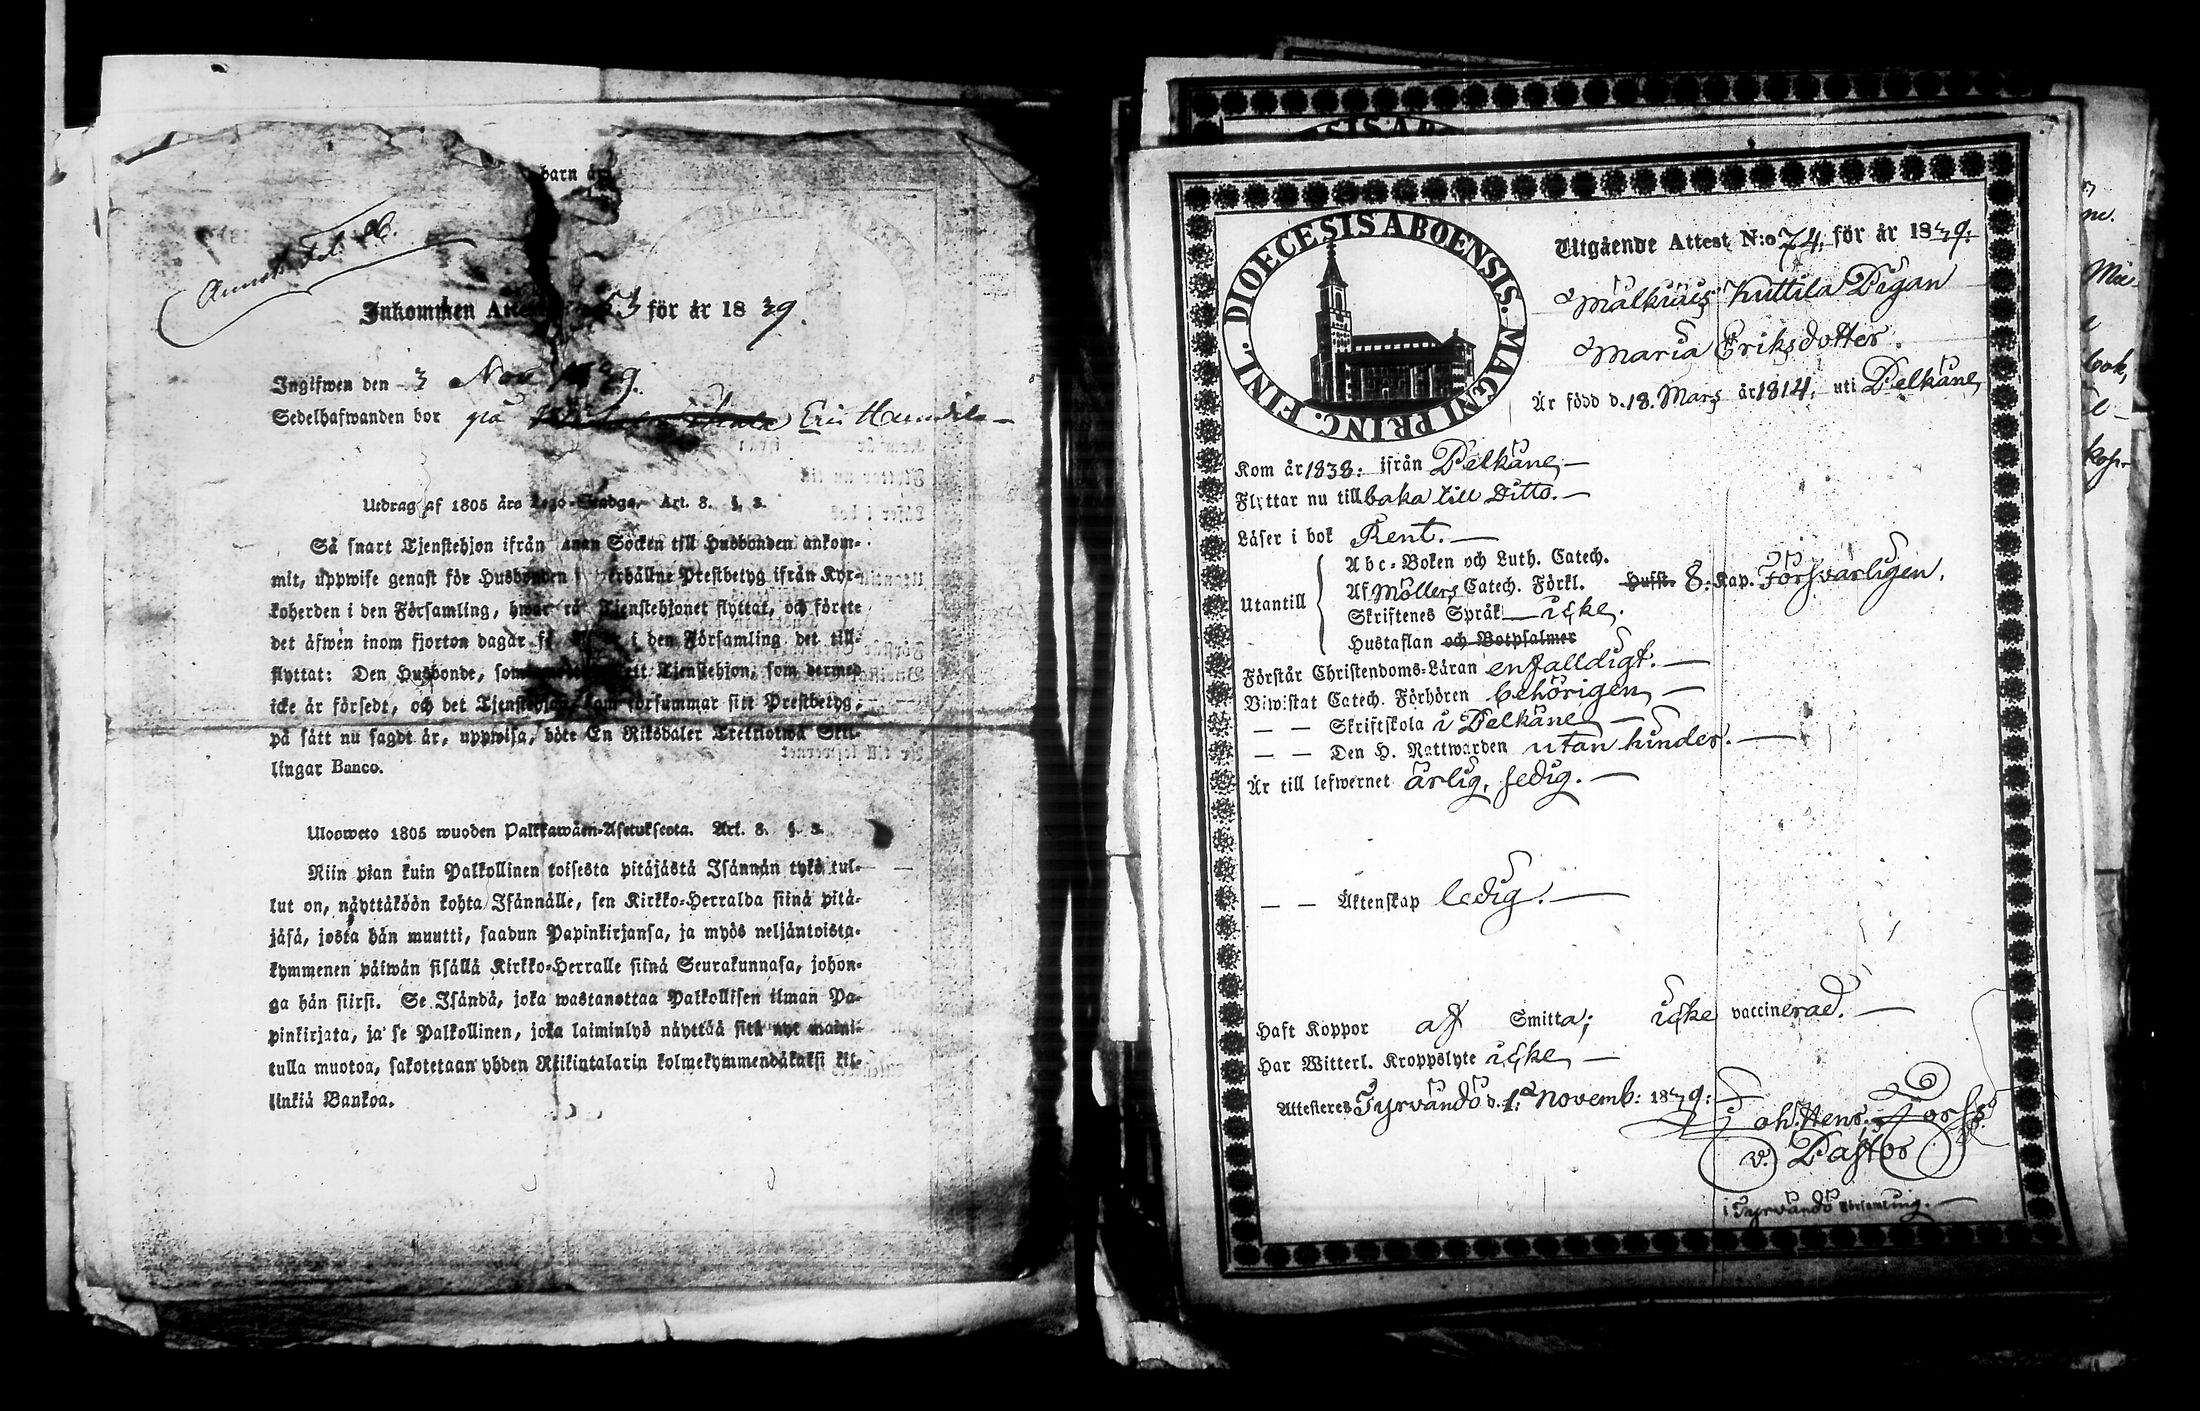 barn är
Annot. Fol. 86.
Inkommen Attest 53 för år 1839.
Ingifwen den 3 Nov 1839.
Sedelhafwanden bor på Eric Hannila
Utdrag af 1805 års Lego-Stadga. Art. 8. §. 2.
Så snart Tjenstehjon ifrån annan Socken till Husbonden ankom-
mit, uppwise genast för Husbonden erhållne Prestbetyg ifrån Kyr-
koherden i den Församling, hwar Tjenstehjonet flyttat, och förete
det äfwen inom fjorton dagar i den Församling det till-
flyttat: Den Husbonde, som ett Tjenstehjon, som dermed
icke är försedt, och det Tjenstehjon, som försummar sitt Prestbetyg,
på sätt nu sagdt är, uppwisa, böte En Riksdaler Trettiotwå Skil-
lingar Banco.
Uloswеto 1805 wuoden Palkkawäen-Asetuksesta. Art. 8. §. 2.
Niin pian kuin Palkollinen toisesta pitäjästä Isännän tykö tul-
lut on, näyttäköön kohta Isännälle, sen Kirkko-Herralda siinä pitä-
jäsä, josta hän muutti, saadun Papinkirjansa, ja myös neljäntoista-
kymmenen päiwän sisällä Kirkko-Herralle siinä Seurakunnasa, johon-
ga hän siirsi. Se Isändä, joka wastanottaa Palkollisen ilman Pa-
pinkirjata, ja se Palkollinen, joka laiminlyö näyttää sitä nyt maini-
tulla muotoa, sakotetaan yhden Riikintalarin kolmekymmendäkaksi kil-
linkiä Bankoa.
DIOECESIS ABOENSIS. MAGNI PRINC. FINL.
Utgående Attest N:o 74. för år 1839.
Målkiäis Kuttila Pigan
Maria Eriksdotter.
Är född d. 18. Mars år 1814. uti Pelkäne
Kom år 1838. ifrån Pelkäne
Flyttar nu tillbaka till Ditto.
Läser i bok Rent.
Utantill
Abc-Boken och Luth. Catech.
Af Möllers Catech. Förkl. Hufst. 8. Kap. Försvarligen.
Skriftenes Språk icke.
Hustaflan och Botpsalmer
Förstår Christendoms-Läran enfalldigt.
Biwistat Catech. Förhören behörigen
— — Skriftskola i Pelkäne
— — Den H. Nattwarden utan hinder.
Är till lefwernet ärlig, sedig.
— — Äktenskap ledig.
Haft Koppor af Smitta; icke vaccinerad.
Har Witterl. Kroppslyte icke
Attesteres Tyrvändö d. 1. Novemb: 1839:
Joh. Henr. Forss
v. Pastor
i Tyrvändö Församling.